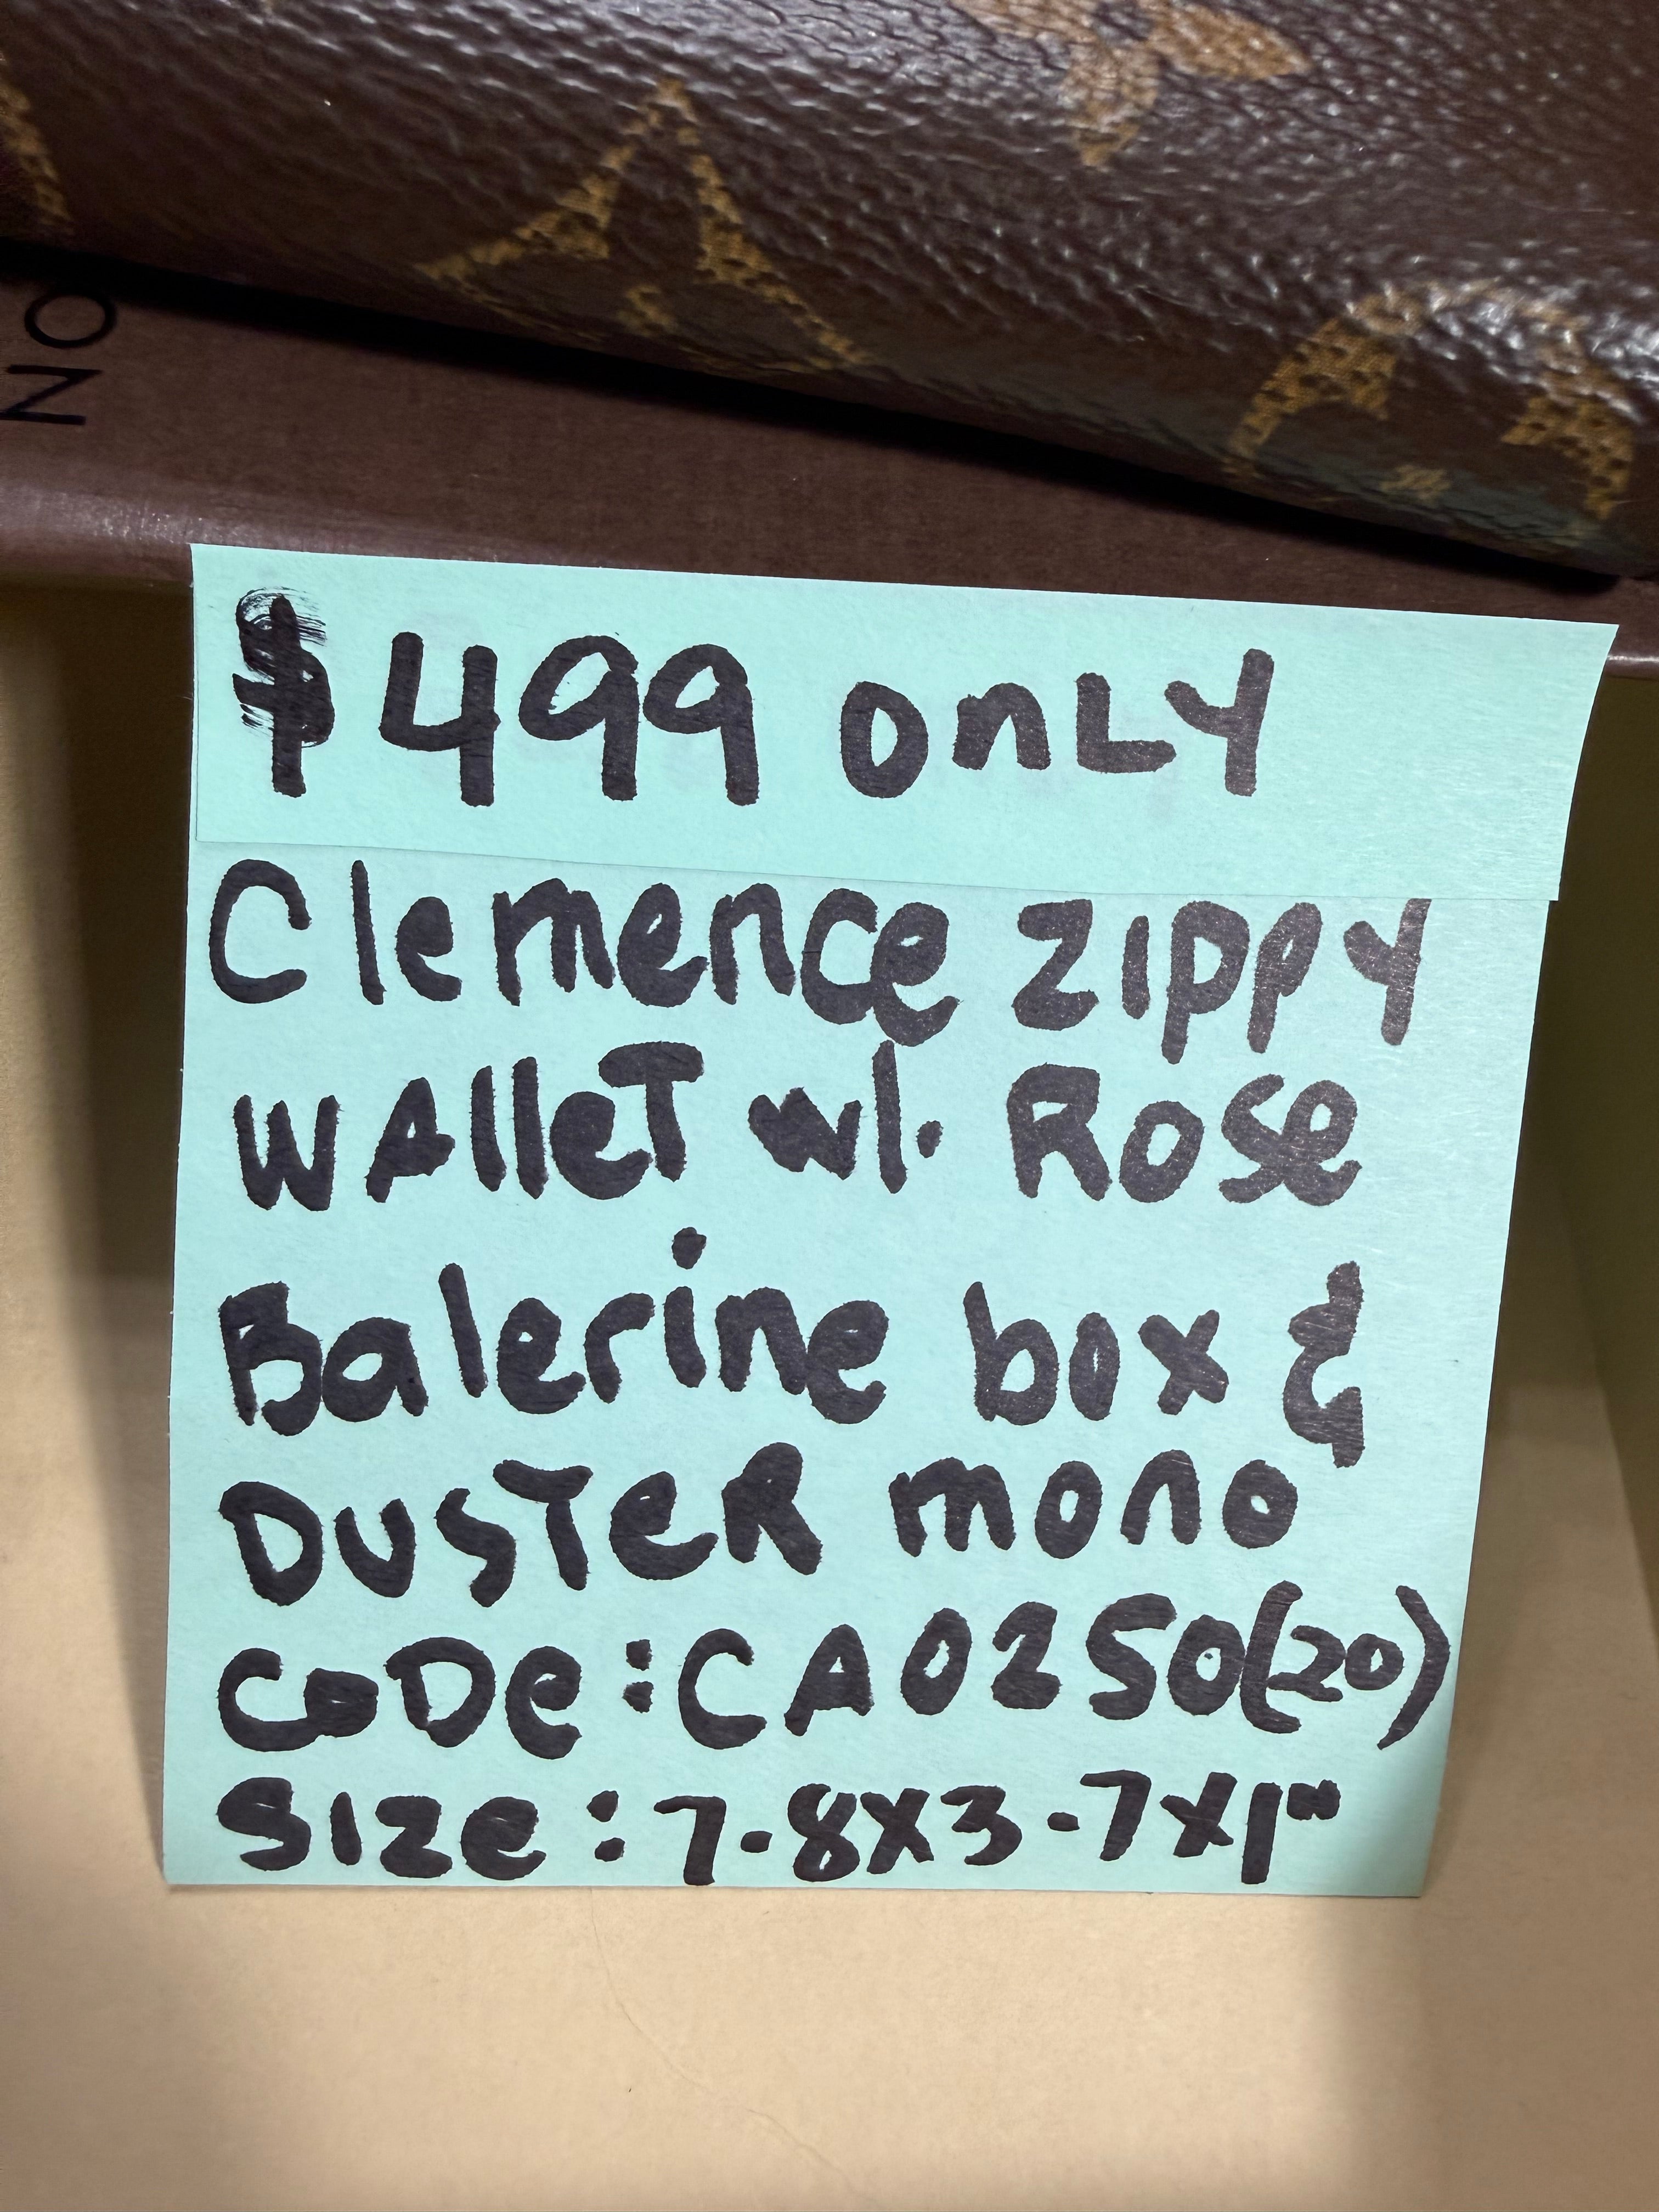 NO
$499 only
Clemence zippy
WAlleT w/. Rose
Balerine box &
DUSTeR mono
CoDe:CA0250(20)
Size:7.8X3.7X1"